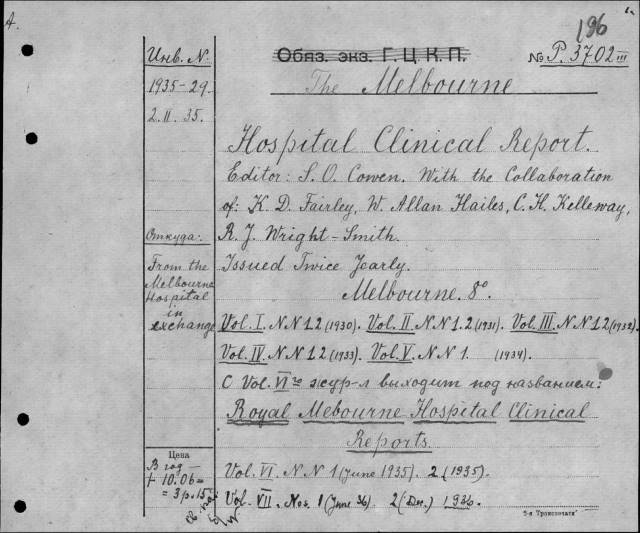 A.
196
Инв. N.
Обяз. экз. Г. Ц. К. П.
№ P. 3702 III
1935-29.
The Melbourne
2. II. 35.
Hospital Clinical Report.
Editor: S. O. Cowen. With the Collaboration
of: K. D. Fairley, W. Allan Hailes, C. H. Kelleway,
Откуда:
R. J. Wright-Smith.
From the
Melbourne
Hospital
in
exchange
Issued Twice Yearly.
Melbourne. 8°.
Vol. I. N.N 1.2 (1930). Vol. II. N.N 1.2. (1931). Vol. III. N.N 1.2 (1932).
Vol. IV. N.N 1.2 (1933). Vol. V. N.N 1. (1934).
С Vol. VI го жур-л выходит под названием:
Royal Mebourne Hospital Clinical
Reports.
Цена
В год —
+ 10.06 =
= 3 р. 15
Vol. VI. N.N 1 (June 1935). 2 (1935).
Vol. VII. Nos. 1 (June 36) 2 (Dec.) 1936.
5-я Транспечати